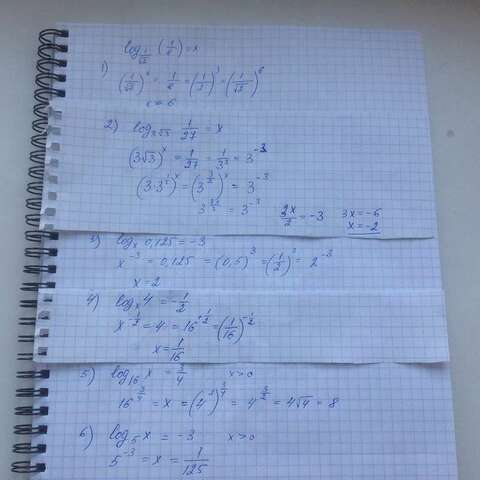 log_{1/√2} (1/8) = x
1) (1/√2)^x = 1/8 = (1/2)^3 = (1/√2)^6
x = 6
2) log_{3√3} 1/27 = x
(3√3)^x = 1/27 = 1/3^3 = 3^{-3}
(3·3^{1/2})^x = (3^{3/2})^x = 3^{-3}
3^{3x/2} = 3^{-3} 3x/2 = -3 3x = -6
x = -2
3) log_x 0,125 = -3
x^{-3} = 0,125 = (0,5)^3 = (1/2)^3 = 2^{-3}
x = 2
4) log_x 4 = -1/2
x^{-1/2} = 4 = 16^{+1/2} = (1/16)^{-1/2}
x = 1/16
5) log_{16} x = 3/4 x>0
16^{3/4} = x = (4^2)^{3/4} = 4^{3/2} = 4√4 = 8
6) log_5 x = -3 x>0
5^{-3} = x = 1/125